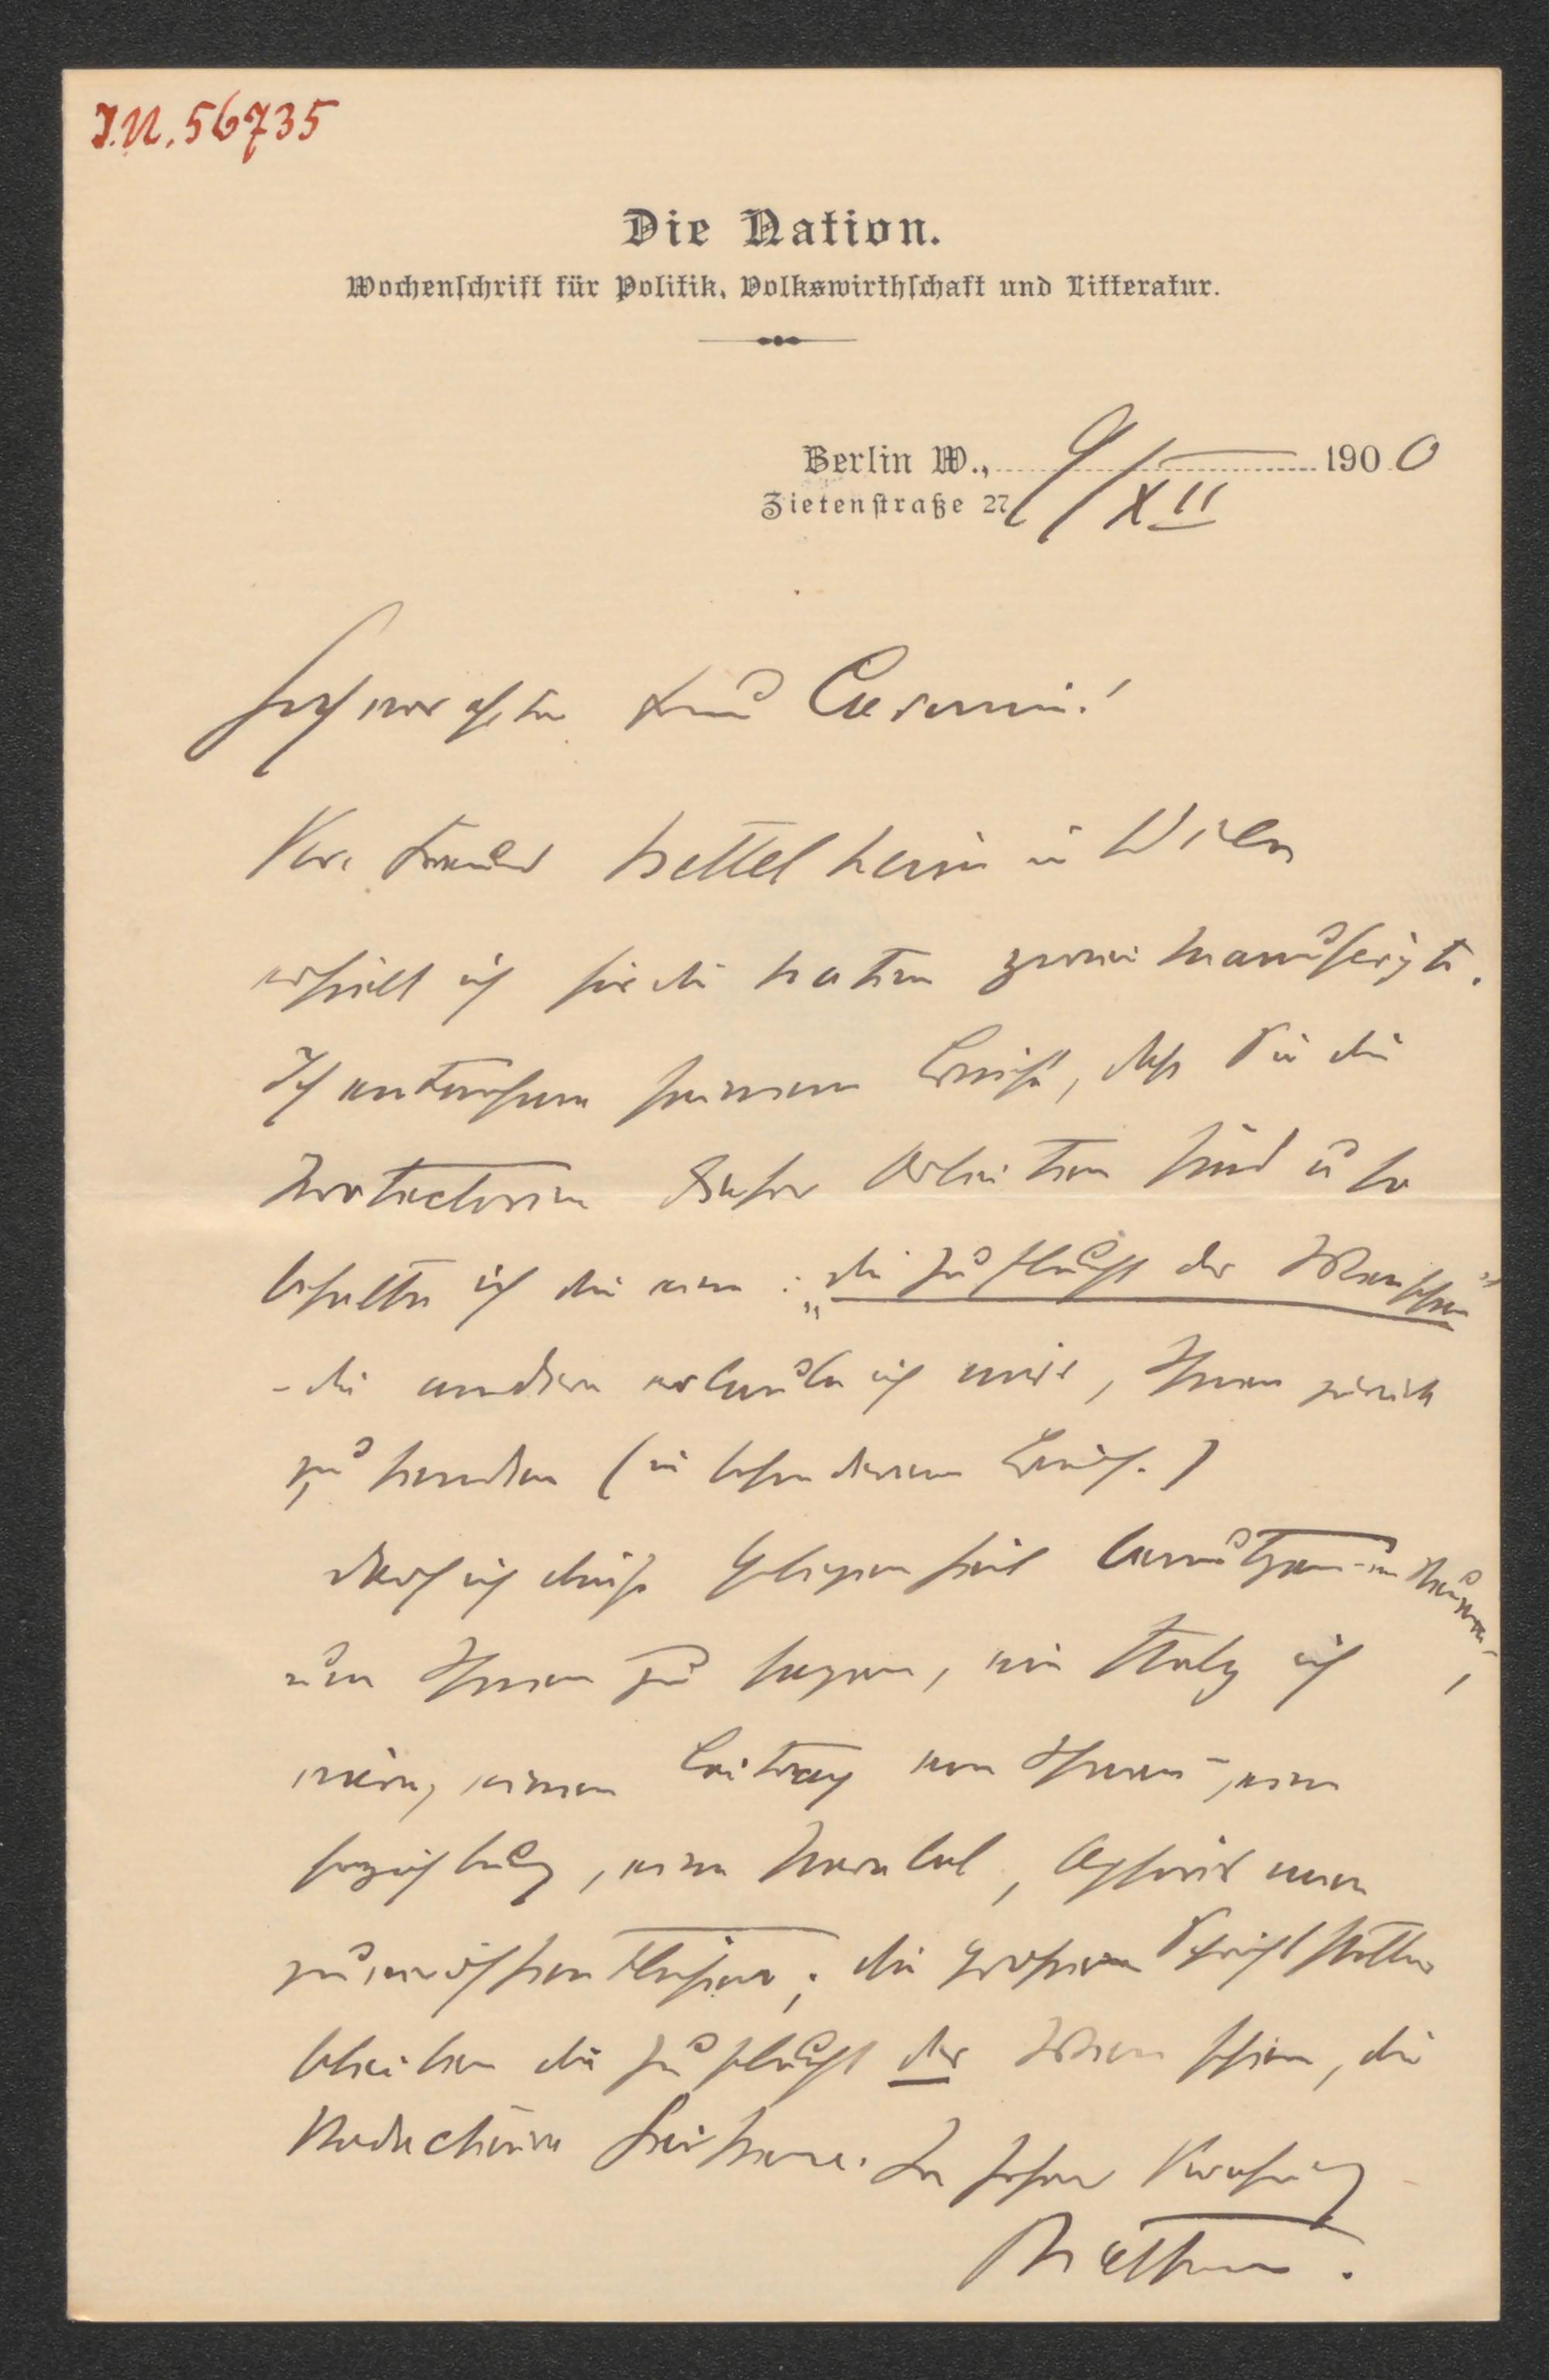 J.N. 56735
Die Nation.
Wochenschrift für Politik, Volkswirthschaft und Litteratur.
Berlin W., 9/XII 1900
Zietenstraße 27
Hochverehrte Frau Baronin!
Von Freund Bettelheim in Wien
erhielt ich für die Nation zwei Manuscripte.
Ich entnehme seinem Briefe, daß Sie die
Protectorin dieser Arbeiten sind u so
behalte ich die eine: „die Zuflucht der Menschen"
- die andere erlaube ich mir, Ihnen zurück
zu senden (in besonderem Brief.)
Darf ich diese Gelegenheit benützen
um Ihnen zu sagen, wie stolz ich
wäre, einen Beitrag von Ihnen - eine
Erzählung, eine Parabel, Aphorismen
zu veröffentlichen; die großen Schriftsteller
bleiben die Zuflucht der Menschen, die
Redacteure heißen. In hoher Verehrung